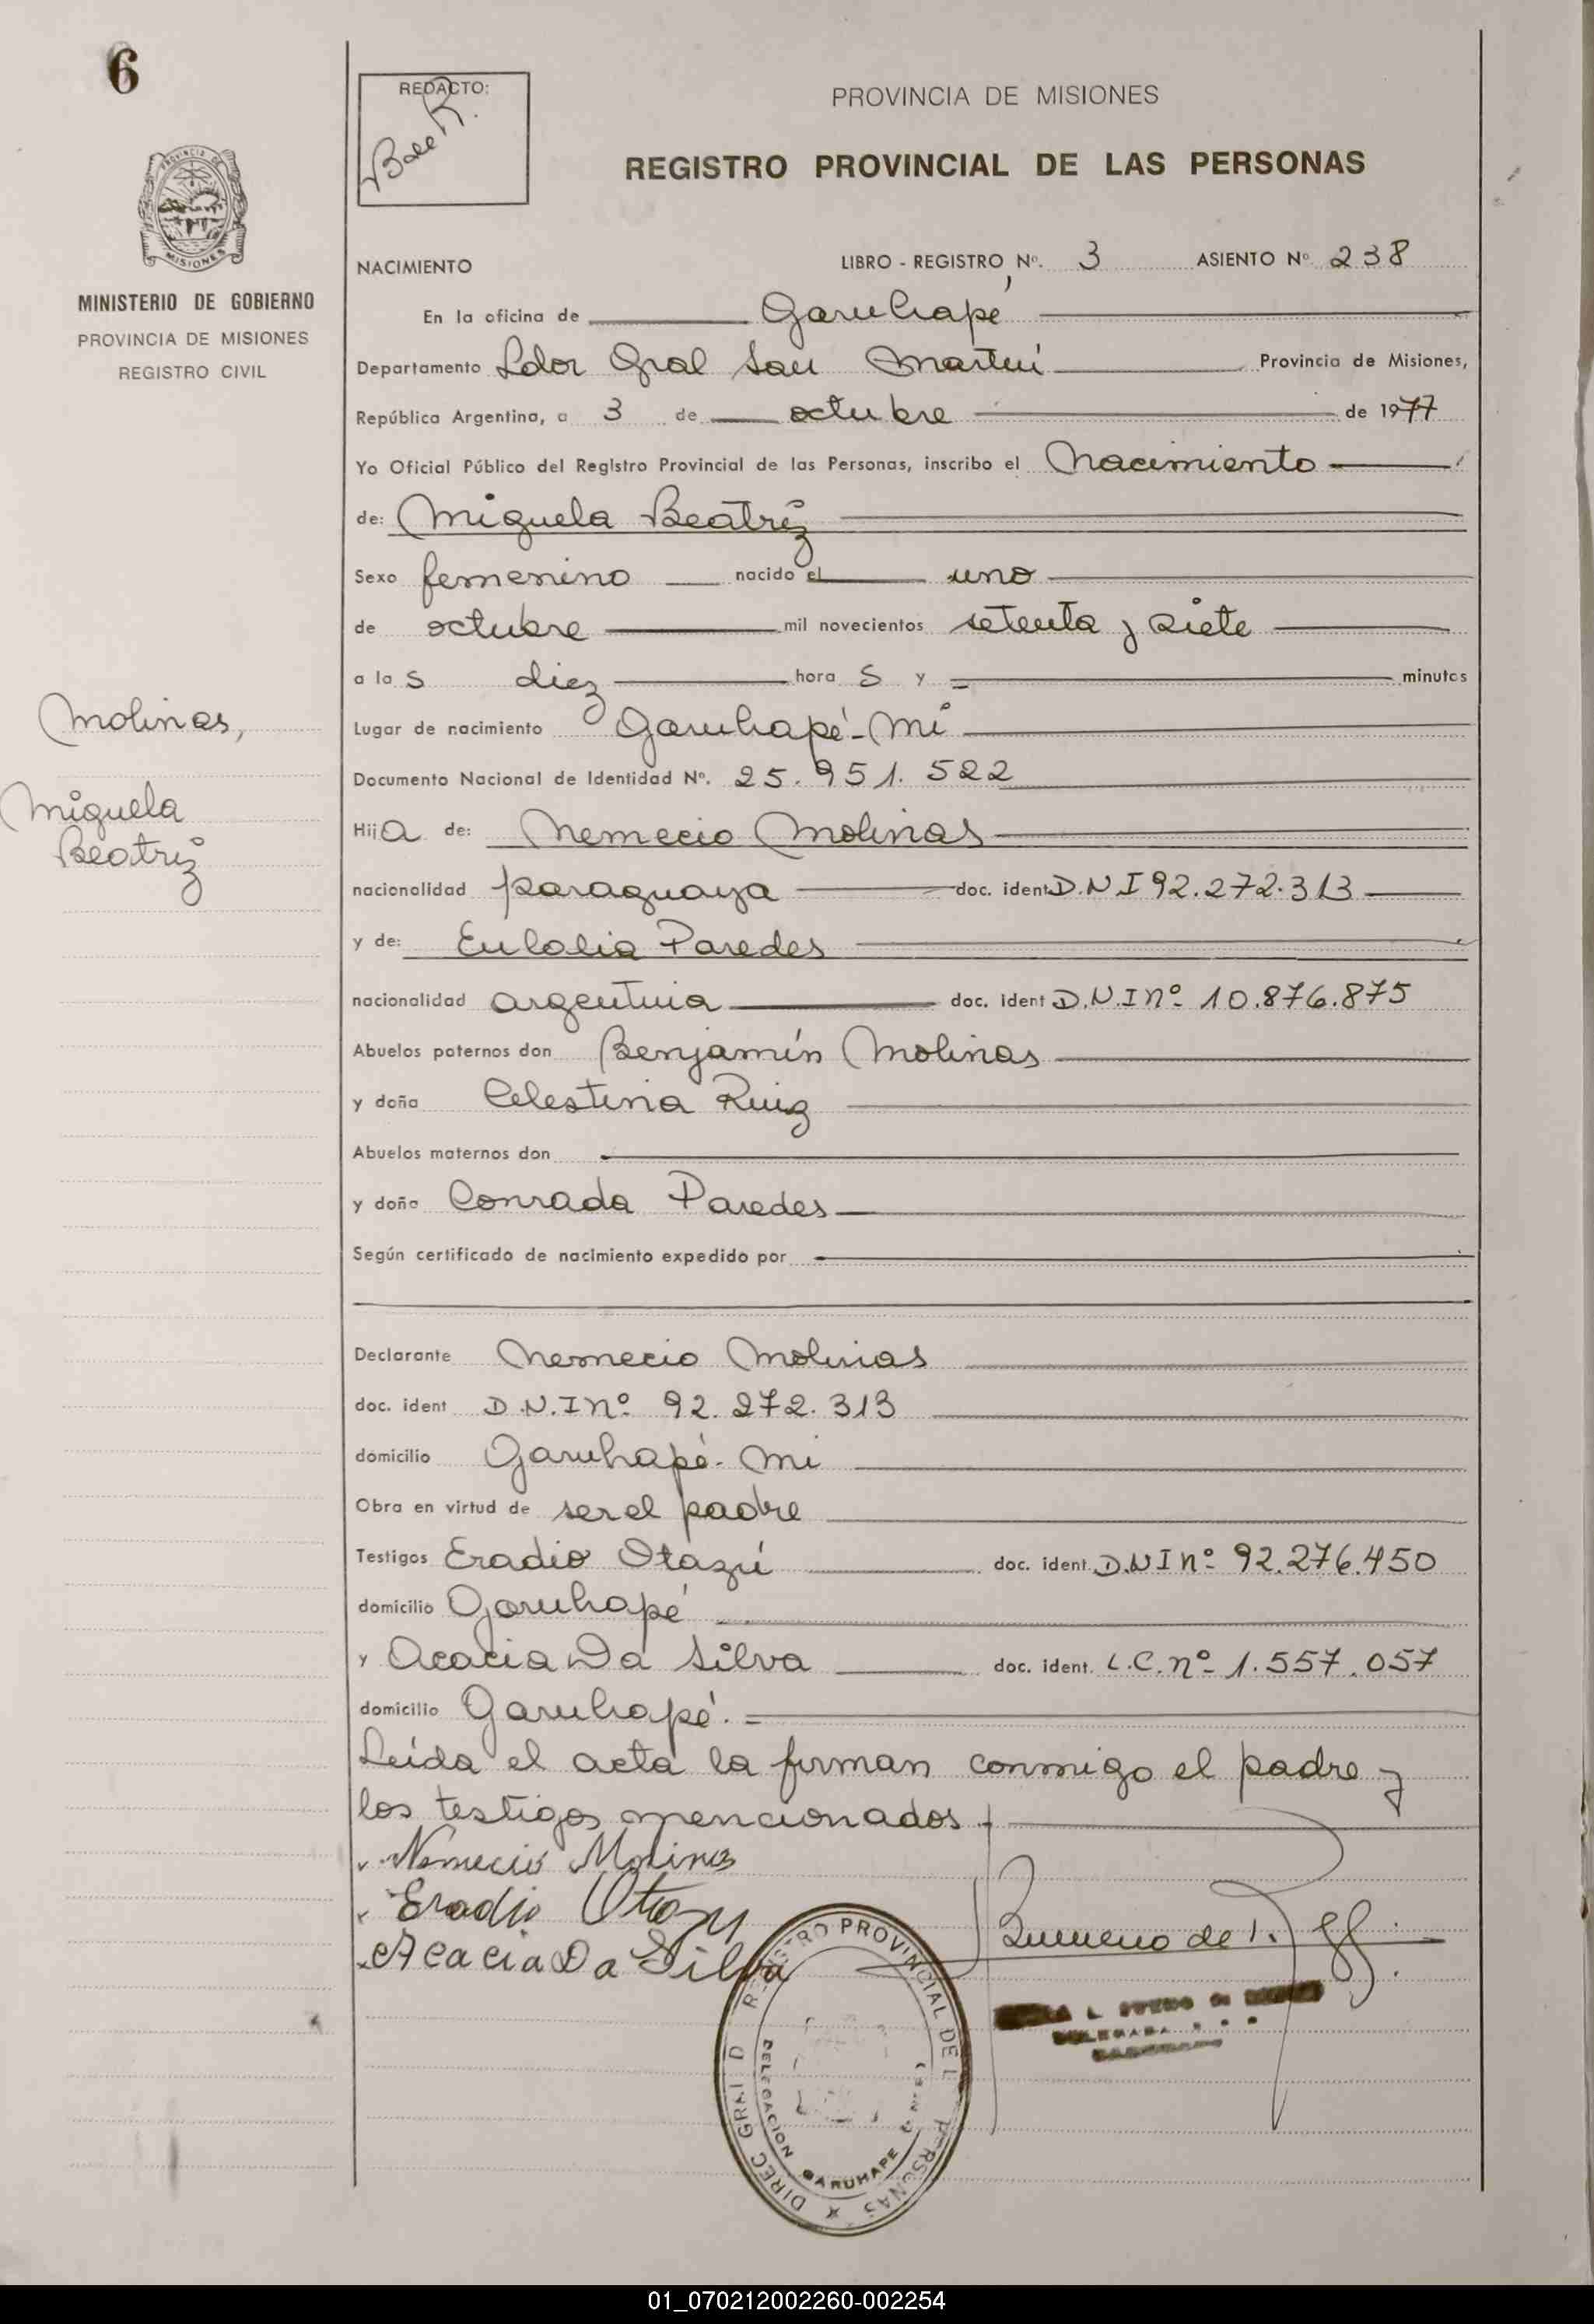 6
REDACTO:
PROVINCIA DE MISIONES
REGISTRO PROVINCIAL DE LAS PERSONAS
PROVINCIA DE
MISIONES
MINISTERIO DE GOBIERNO
PROVINCIA DE MISIONES
REGISTRO CIVIL
NACIMIENTO LIBRO - REGISTRO Nº. 3 ASIENTO Nº 238
En la oficina de Garuhapé
Departamento Ldor Gral San Martín Provincia de Misiones,
República Argentina, a 3 de octubre de 1977
Yo Oficial Público del Registro Provincial de las Personas, inscribo el Nacimiento
de: Miguela Beatriz
Sexo femenino nacido el uno
de octubre mil novecientos setenta y siete
a la s diez hora s y = minutos
Molinas,
Lugar de nacimiento Garuhapé-Mi
Documento Nacional de Identidad Nº. 25.951.522
Miguela
Beatriz
Hija de: Nemecio Molinas
nacionalidad paraguaya doc. ident D.N I 92.272.313
y de: Eulalia Paredes
nacionalidad argentina doc. ident D.N.I nº 10.876.875
Abuelos paternos don Benjamín Molinas
y doña Celestina Ruiz
Abuelos maternos don
y doña Conrada Paredes
Según certificado de nacimiento expedido por
Declarante Nemecio Molinas
doc. ident D.N.I nº 92.272.313
domicilio Garuhapé-Mi
Obra en virtud de ser el padre
Testigos Eradio Otazú doc. ident. D.N I nº 92.276.450
domicilio Garuhapé
y Acacia Da Silva doc. ident. L.C. nº 1.557.057
domicilio Garuhapé. =
Leída el acta la firman conmigo el padre y
los testigos mencionados
Nemecio Molinas
Eradio Otazu
Acacia Da Silva
DIREC GRAL D REGISTRO PROVINCIAL DE L PERSONAS
DELEGACION GARUHAPE
01_070212002260-002254